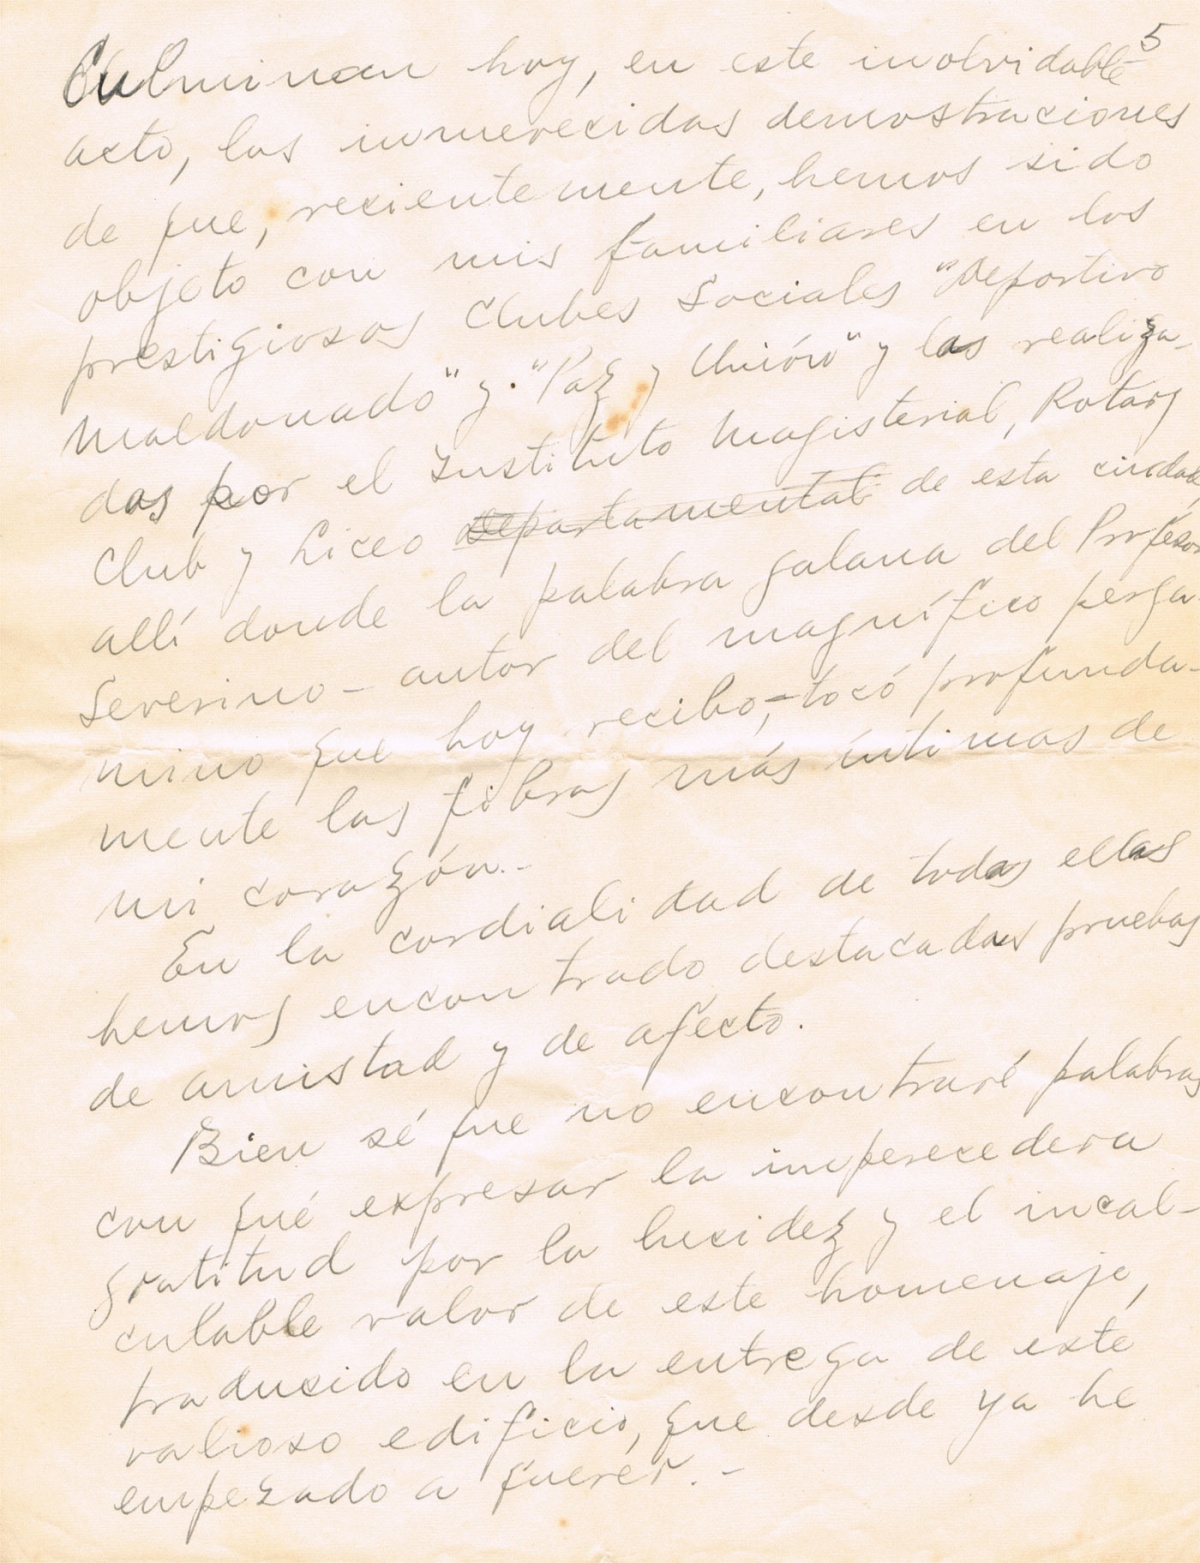 5
Culminan hoy, en este inolvidable
acto, las inmerecidas demostraciones
de que, recientemente, hemos sido
objeto con mis familiares en los
prestigiosos Clubes Sociales "Deportivo
Maldonado" y "Paz y Unión" y las realiza-
das por el Instituto Magisterial, Rotary
Club y Liceo Departamental de esta ciudad,
allí donde la palabra galana del Profesor
Severino - autor del magnífico perga-
mino que hoy recibo, - tocó profunda-
mente las fibras más íntimas de
mi corazón. -
En la cordialidad de todas ellas
hemos encontrado destacadas pruebas
de amistad y de afecto.
Bien sé que no encontraré palabras
con qué expresar la imperecedera
gratitud por la lucidez y el incal-
culable valor de este homenaje,
traducido en la entrega de este
valioso edificio, que desde ya he
empezado a querer. -